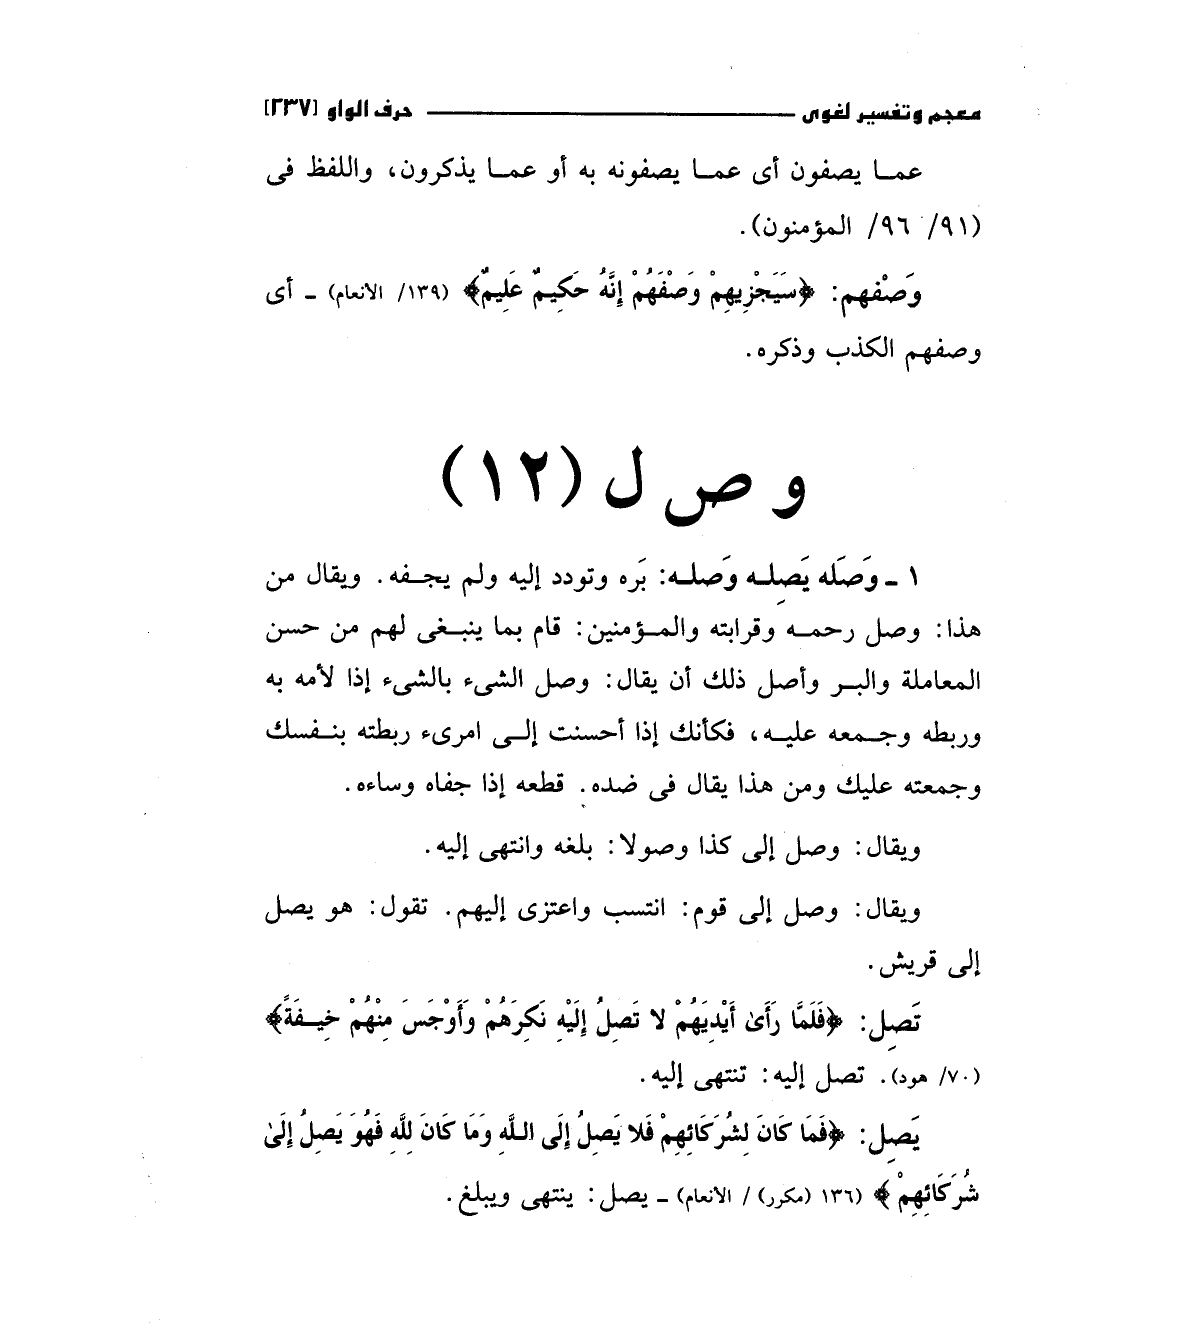 معجم وتفسير لغوى ـــــــــ حرف الواو [٢٣٧]
عمـا يصفون أى عمـا يصفونه به أو عمـا يذكرون، واللفظ فى
(٩١/ ٩٦/ المؤمنون).
وَصْفهم: ﴿سَيَجْزِيهِمْ وَصْفَهُمْ إِنَّهُ حَكِيمٌ عَلِيمٌ﴾ (١٣٩/ الأنعام) ـ أى
وصفهم الكذب وذكره.
و ص ل (١٢)
١ ـ وَصَله يَصِلـه وَصلـه: بَره وتودد إليه ولم يجـفه. ويقال من
هذا: وصل رحمـه وقرابته والمـؤمنين: قام بما ينبـغى لهم من حسن
المعاملة والبـر وأصل ذلك أن يقال: وصل الشىء بالشىء إذا لأمه به
وربطه وجـمعه عليـه، فكأنك إذا أحسنت إلـى امرىء ربطته بنـفسك
وجمعته عليك ومن هذا يقال فى ضده. قطعه إذا جفاه وساءه.
ويقال: وصل إلى كذا وصولا: بلغه وانتهى إليه.
ويقال: وصل إلى قوم: انتسب واعتزى إليهم. تقول: هو يصل
إلى قريش.
تَصِل: ﴿فَلَمَّا رَأَىٰ أَيْدِيَهُمْ لا تَصِلُ إِلَيْهِ نَكِرَهُمْ وَأَوْجَسَ مِنْهُمْ خِيـفَةً﴾
(٧٠/ هود). تصل إليه: تنتهى إليه.
يَصِل: ﴿فَمَا كَانَ لِشُرَكَائِهِمْ فَلا يَصِلُ إِلَى اللَّهِ وَمَا كَانَ لِلَّهِ فَهُوَ يَصِلُ إِلَىٰ
شُرَكَائِهِمْ﴾ (١٣٦ (مكرر) / الأنعام) ـ يصل: ينتهى ويبلغ.